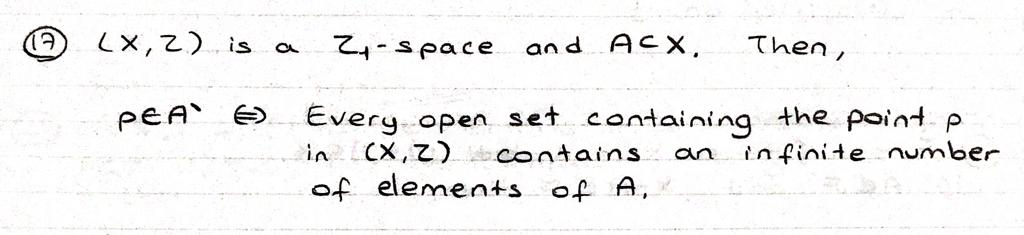 ⑰ (X,τ) is a τ₁-space and A⊂X. Then,
p∈A` ⇔ Every open set containing the point p
in (X,τ) contains an infinite number
of elements of A.